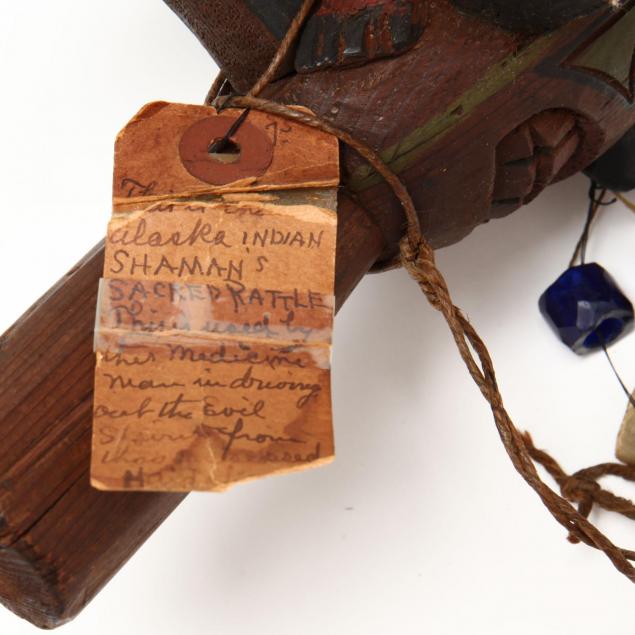 This is an
alaska INDIAN
SHAMAN'S
SACRED RATTLE
This is used by
this medicine
man in driving
out the Evil
Spirits from
those